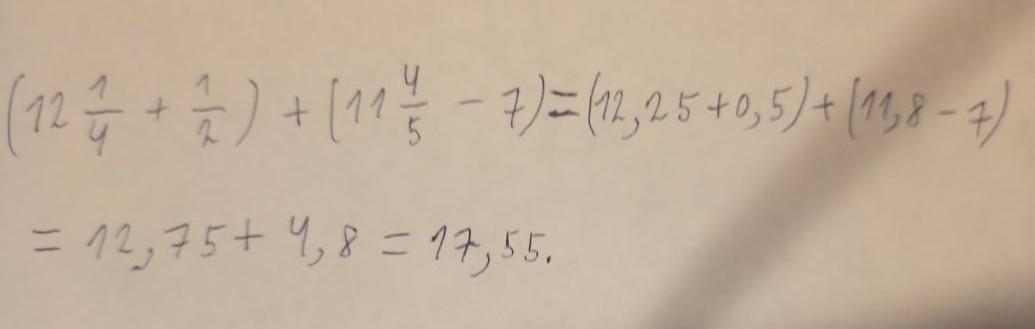 (12 1/4 + 1/2) + (11 4/5 - 7) = (12,25 + 0,5) + (11,8 - 7)
= 12,75 + 4,8 = 17,55.